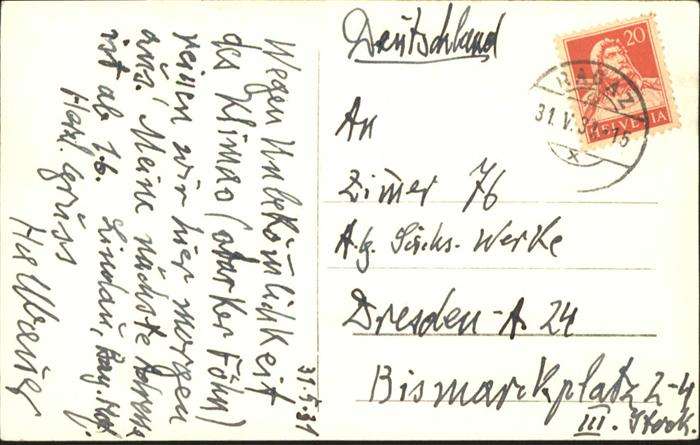 31.5.31
Wegen Unbekömlichkeit
des Klimas (starker Föhn)
reisen wir hier morgen
aus. Meine nächste Adresse
ist ab 2.6. Lindau, Bay. Hof.
Herzl. Gruss
Deutschland
An
Zimer 76
A.g. Sächs. Werke
Dresden-A 24
Bismarckplatz 2-4
III. Stock.
20
HELVETIA
RAGAZ
31.V.31.-16